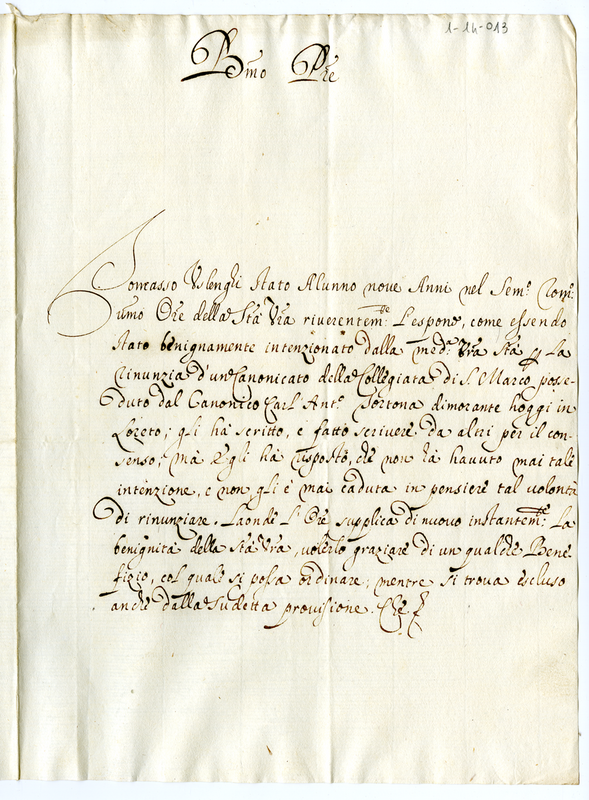 1-14-013
Bmo Pre
Tomasso Uslenghi stato Alunno nove Anni nel Sem.º Rom:
umo Ore della Stà Vra riverentem:te L'espone, come essendo
stato benignamente intenzionato dalla med.a Vra Stà p La
Rinunzia d'un Canonicato della Collegiata di S. Marco posse-
duto dal Canonico Carl' Ant.º Tortona dimorante hoggi in
Loreto; gli hà scritto, e fatto scrivere da altri per il con-
senso; mà Egli hà risposto, che non hà havuto mai tale
intenzione, e non gli è mai caduta in pensiere tal volontà
di rinunziare. Laonde L'Ore supplica di nuovo instantem:te La
benignità della Stà Vra, volerlo graziare di un qualche Bene
fizio, col quale si possa ordinare; mentre si trova escluso
anche dalla sudetta provisione. Che